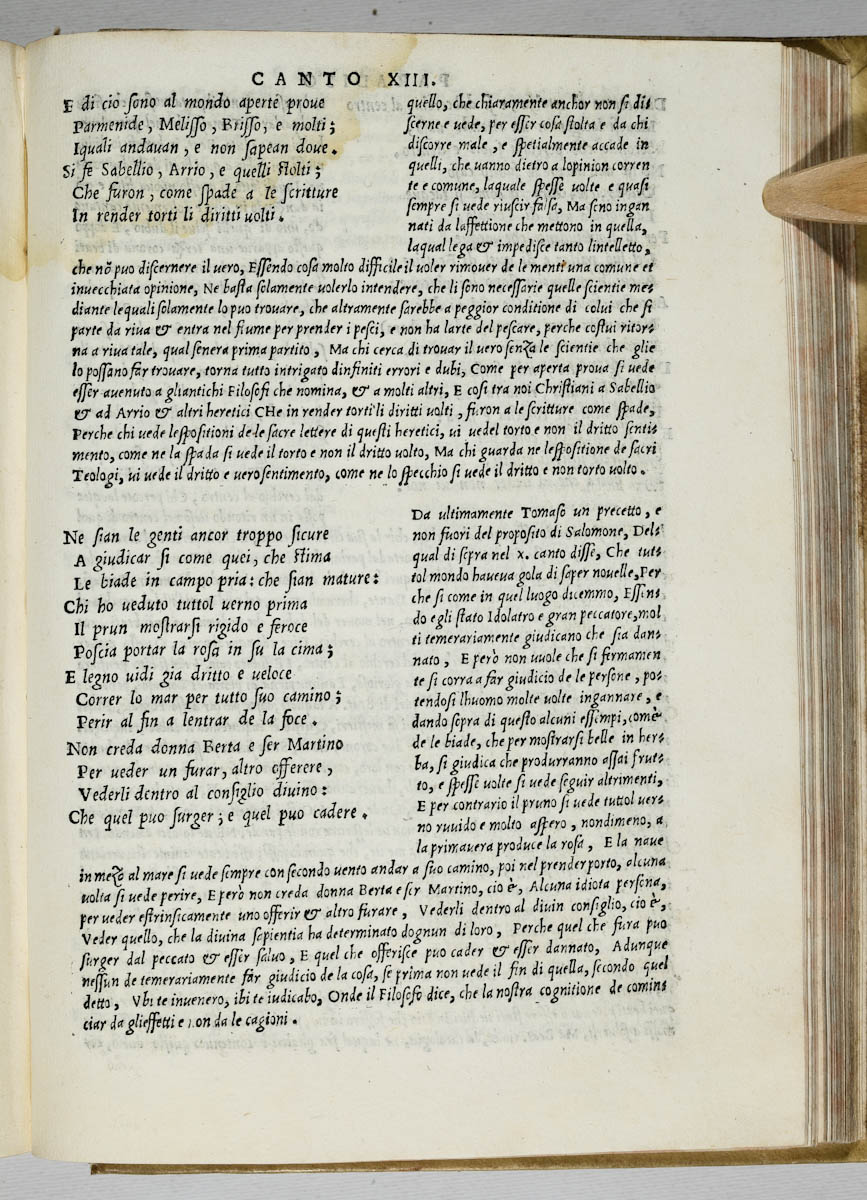 CANTO XIII.
E di cio sono al mondo aperte proue
Parmenide, Melisso, Brisso, e molti;
Iquali andauan, e non sapean doue.
Si fe Sabellio, Arrio, e quelli stolti;
Che furon, come spade a le scritture
In render torti li diritti uolti.
quello, che chiaramente anchor non si di⸗
scerne e uede, per esser cosa stolta e da chi
discorre male, e spetialmente accade in
quelli, che uanno dietro a lopinion corren
te e comune, laquale spesse uolte e quasi
sempre si uede riuscir falsa, Ma sono ingan
nati da laffettione che mettono in quella,
laqual lega & impedisce tanto lintelletto,
che nõ puo discernere il uero, Essendo cosa molto difficile il uoler rimouer de le menti una comune et
inuecchiata opinione, Ne basta solamente uolerlo intendere, che li sono necessarie quelle scientie me⸗
diante lequali solamente lo puo trouare, che altramente sarebbe a peggior conditione di colui che si
parte da riua & entra nel fiume per prender i pesci, e non ha larte del pescare, perche costui ritor⸗
na a riua tale, qual senera prima partito, Ma chi cerca di trouar il uero senza le scientie che glie
lo possano far trouare, torna tutto intrigato dinfiniti errori e dubi, Come per aperta proua si uede
esser auenuto a gliantichi Filosofi che nomina, & a molti altri, E cosi tra noi Christiani a Sabellio
& ad Arrio & altri heretici CHe in render torti li diritti uolti, furon a le scritture come spade,
Perche chi uede lespositioni de le sacre lettere di questi heretici, ui uedel torto e non il dritto senti⸗
mento, come ne la spada si uede il torto e non il dritto uolto, Ma chi guarda ne lespositione de sacri
Teologi, ui uede il dritto e uero sentimento, come ne lo specchio si uede il dritto e non torto uolto.
Ne sian le genti ancor troppo sicure
A giudicar si come quei, che stima
Le biade in campo pria: che sian mature:
Chi ho ueduto tuttol uerno prima
Il prun mostrarsi rigido e feroce
Poscia portar la rosa in su la cima;
E legno uidi gia dritto e ueloce
Correr lo mar per tutto suo camino;
Perir al fin a lentrar de la foce.
Non creda donna Berta e ser Martino
Per ueder un furar, altro offerere,
Vederli dentro al consiglio diuino:
Che quel puo surger; e quel puo cadere.
Da ultimamente Tomaso un precetto, e
non fuori del proposito di Salomone, Del⸗
qual di sopra nel x. canto disse, Che tut⸗
tol mondo haueua gola di saper nouelle, Per
che si come in quel luogo dicemmo, Essen⸗
do egli stato Idolatro e gran peccatore, mol
ti temerariamente giudicano che sia dan⸗
nato, E però non uuole che si fermamen
te si corra a far giudicio de le persone, po⸗
tendosi lhuomo molte uolte ingannare, e
dando sopra di questo alcuni essempi, com è
de le biade, che per mostrarsi belle in her⸗
ba, si giudica che produrranno assai frut⸗
to, e spesse uolte si uede seguir altrimenti,
E per contrario il pruno si uede tuttol uer⸗
no ruuido e molto aspero, nondimeno, a
la primauera produce la rosa, E la naue
in mezo al mare si uede sempre con secondo uento andar a suo camino, poi nel prender porto, alcuna
uolta si uede perire, E però non creda donna Berta e ser Martino, cio è, Alcuna idiota persona,
per ueder estrinsicamente uno offerir & altro furare, Vederli dentro al diuin consiglio, cio è,
Veder quello, che la diuina sapientia ha determinato dognun di loro, Perche quel che fura puo
surger dal peccato & esser saluo, E quel che offerisce puo cader & esser dannato, Adunque
nessun de temerariamente far giudicio de la cosa, se prima non uede il fin di quella, secondo quel
detto, Vbi te inuenero, ibi te iudicabo, Onde il Filosofo dice, che la nostra cognitione de comin⸗
ciar da glieffetti e non da le cagioni.